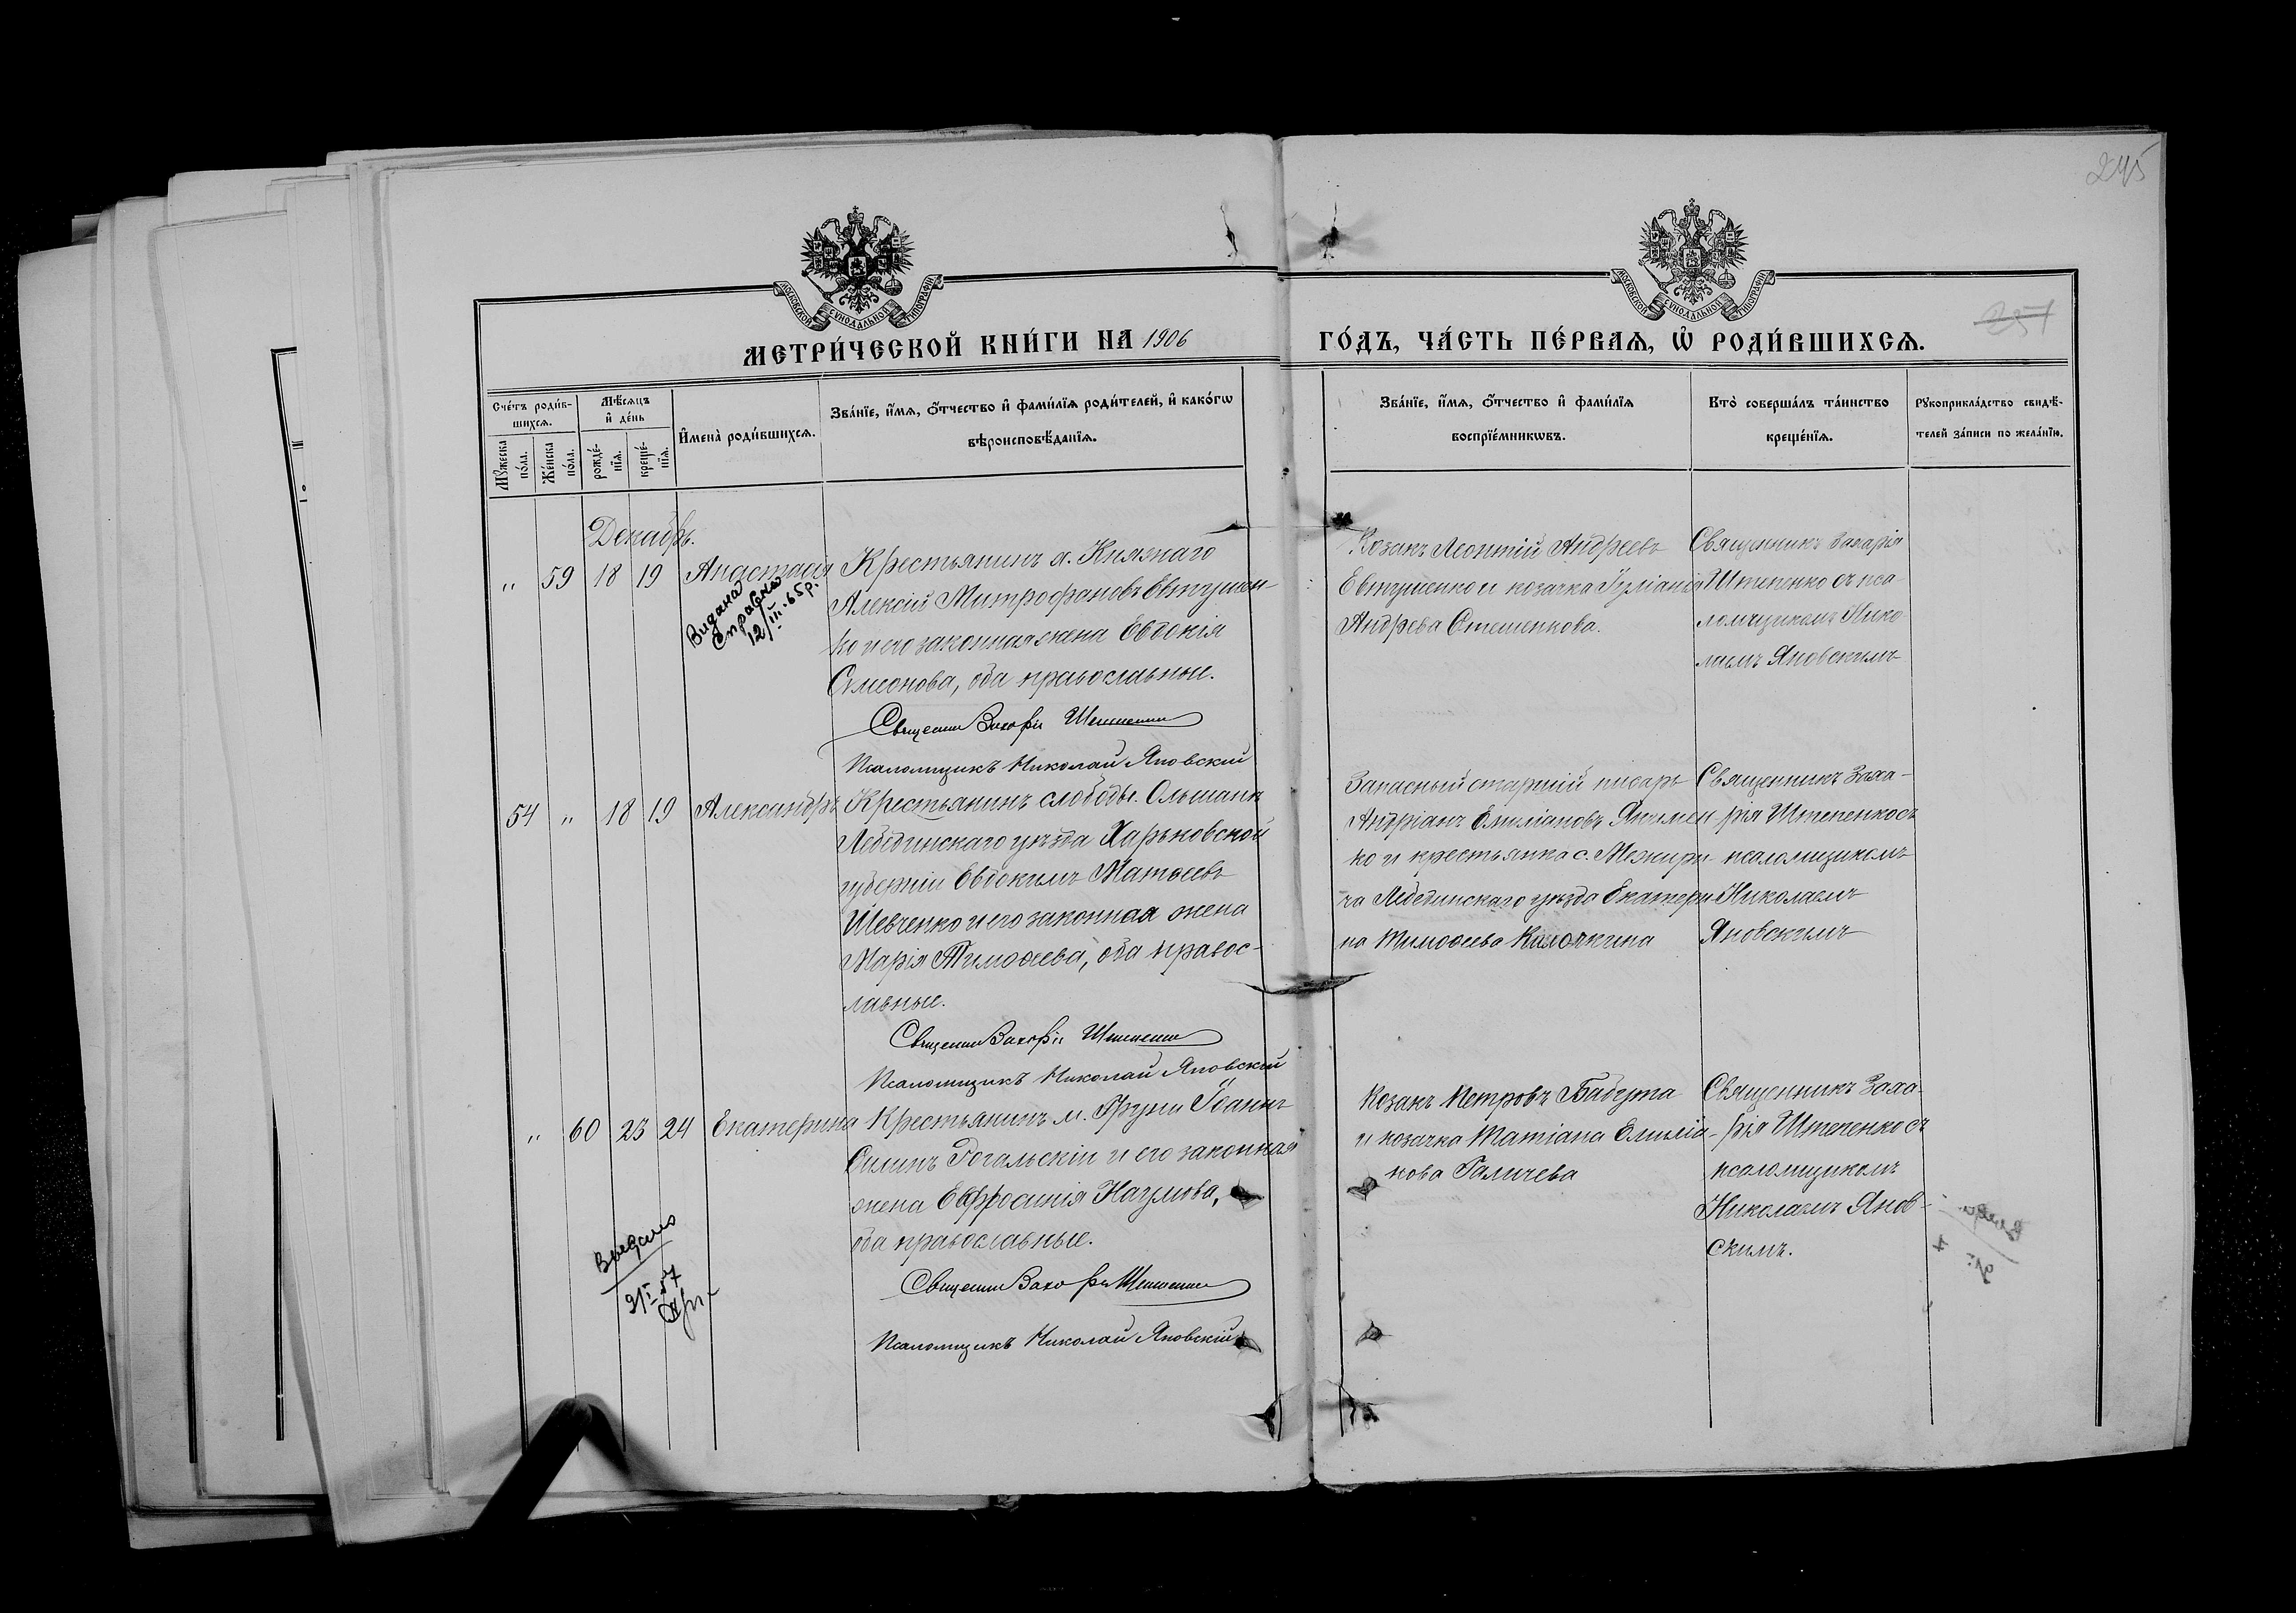 245
МОСКОВСКОЙ СѴНОДАЛЬНОЙ ТИПОГРАФІИ
МОСКОВСКОЙ СѴНОДАЛЬНОЙ ТИПОГРАФІИ
257
МЕТРИ́ЧЕСКОЙ КНИ́ГИ НА 1906
ГО́ДЪ, ЧА́СТЬ ПЕ́РВАѦ, Ѡ҆ РОДИ́ВШИХСѦ.
Сче́тъ роди́в-
шихсѧ.
Мꙋжеска по́ла.
Же́нска по́ла.
Мѣ́сѧцъ
и҆ де́нь
рожде́-нїѧ.
креще́-нїѧ.
И҆мена̀ роди́вшихсѧ.
Зва́нїе, и҆́мѧ, ѻ҆́тчество и҆ фами́лїѧ роди́телей, и҆ како́гѡ
вѣроисповѣ́данїѧ.
Зва́нїе, и҆́мѧ, ѻ҆́тчество и҆ фами́лїѧ
воспрїе́мникѡвъ.
Кто̀ соверша́лъ та́инство
креще́нїѧ.
Рꙋкоприкла́дство свидѣ́-
телей за́писи по жела́нїю.
Декабрь.
" 59 18 19 Анастасія
Видана
Справка
12/III.65р.
Крестьянинъ д. Княжаго
Алексій Митрофановъ Евтушен-
ко и его законная жена Евдокія
Симеонова, оба православные.
Священн Захарія Штепенко
Псаломщикъ Николай Яновскій
Козакъ Леонтій Андреевъ
Евтушенко и козачка Іуліанія
Андреева Стешенкова.
Священникъ Захарія
Штепенко съ пса-
ломщикомъ Нико-
лаемъ Яновскимъ
54 " 18 19 Александръ
Крестьянинъ слободы Ольшанк
Лебединскаго уѣзда Харьковской
губерніи Евдокимъ Матѳеевъ
Шевченко и его законная жена
Марія Тимоѳеева, оба правос-
лавные.
Священн Захарія Штепенко
Псаломщикъ Николай Яновскій
Запасный старшій писарь
Андріанъ Емиліановъ Якимен-
ко и крестьянка с. Межири-
ча Лебединскаго уѣзда Екатери-
на Тимоѳеева
Священникъ Заха-
рія Штепенко съ
псаломщикомъ
Николаемъ
Яновскимъ
" 60 23 24 Екатерина
Крестьянинъ м. Груни Іоаннъ
Рогальскій и его законная
жена Евфросинія Наумова,
оба православные.
Священн Захарія Штепенко
Псаломщикъ Николай Яновскій
Козакъ Петровъ Бабута
и козачка Татіана Емиліа-
нова Галичева
Священникъ Заха-
рія Штепенко съ
псаломщикомъ
Николаемъ Янов-
скимъ.